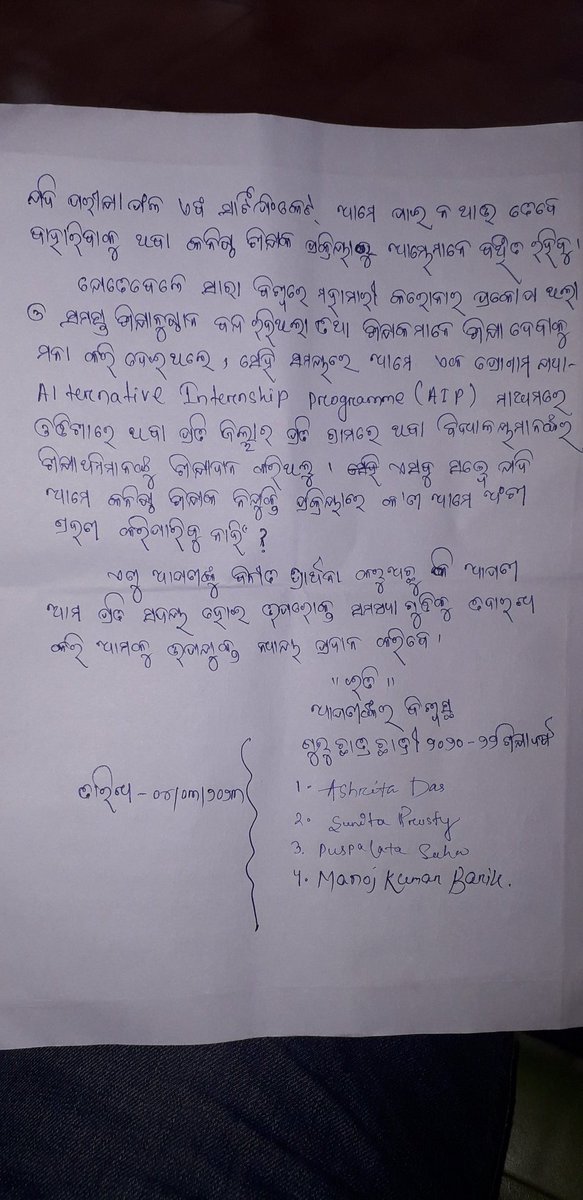 ଯଦି ପରୀକ୍ଷା ଫଳ ଏବଂ ସାର୍ଟିଫିକେଟ୍ ଆମେ ପାଇ ନ ଥାଉ ତେବେ
ବାହାରିବାକୁ ଥିବା କନିଷ୍ଠ ଶିକ୍ଷକ ପ୍ରକ୍ରିୟାରୁ ଆମ୍ଭେମାନେ ବଞ୍ଚିତ ରହିବୁ।
ଯେତେବେଳେ ସାରା ବିଶ୍ୱରେ ମହାମାରୀ କରୋନାର ପ୍ରକୋପ ଥିଲା
ଓ ସମସ୍ତ ଶିକ୍ଷାନୁଷ୍ଠାନ ବନ୍ଦ ରହିଥିଲା ତଥା ଶିକ୍ଷକମାନେ ଶିକ୍ଷା ଦେବାକୁ
ମନା କରି ଦେଇଥିଲେ, ସେହି ସମୟରେ ଆମେ ଏକ ପ୍ରୋଗ୍ରାମ ଯଥା-
Alternative Internship programme (AIP) ମାଧ୍ୟମରେ
ଓଡ଼ିଶାରେ ଥିବା ପ୍ରତି ଜିଲ୍ଲାର ପ୍ରତି ଗ୍ରାମରେ ଥିବା ବିଦ୍ୟାଳୟମାନଙ୍କର
ଶିକ୍ଷାର୍ଥୀମାନଙ୍କୁ ଶିକ୍ଷାଦାନ କରିଥିଲୁ। ଏସବୁ ସତ୍ତ୍ୱେ ଯଦି
ଆମେ କନିଷ୍ଠ ଶିକ୍ଷକ ନିଯୁକ୍ତି ପ୍ରକ୍ରିୟାରେ କ'ଣ ଆମେ ଅଂଶ
ଗ୍ରହଣ କରିପାରିବୁ ନାହିଁ ?
ଏଣୁ ଆପଣଙ୍କୁ ବିନୀତ ପ୍ରାର୍ଥନା କରୁଅଛୁ କି ଆପଣ
ଆମ ପ୍ରତି ସଦୟ ହୋଇ ଉପରୋକ୍ତ ସମସ୍ୟା ଗୁଡିକୁ
କରି ଆମକୁ ଉପଯୁକ୍ତ ନ୍ୟାୟ ପ୍ରଦାନ କରିବେ।
"ଇତି"
ଆପଣଙ୍କର ବିଶ୍ୱସ୍ତ
ଗୁରୁ ଛାତ୍ରଛାତ୍ରୀ ୨୦୨୦-୨୨ ଶିକ୍ଷାବର୍ଷ
ତାରିଖ - ୦୪/୦୩/୨୦୨୩
1. Ashrita Das
2. Sunita Prusty
3. Puspalata Sahu
4. Manoj Kumar Barik.